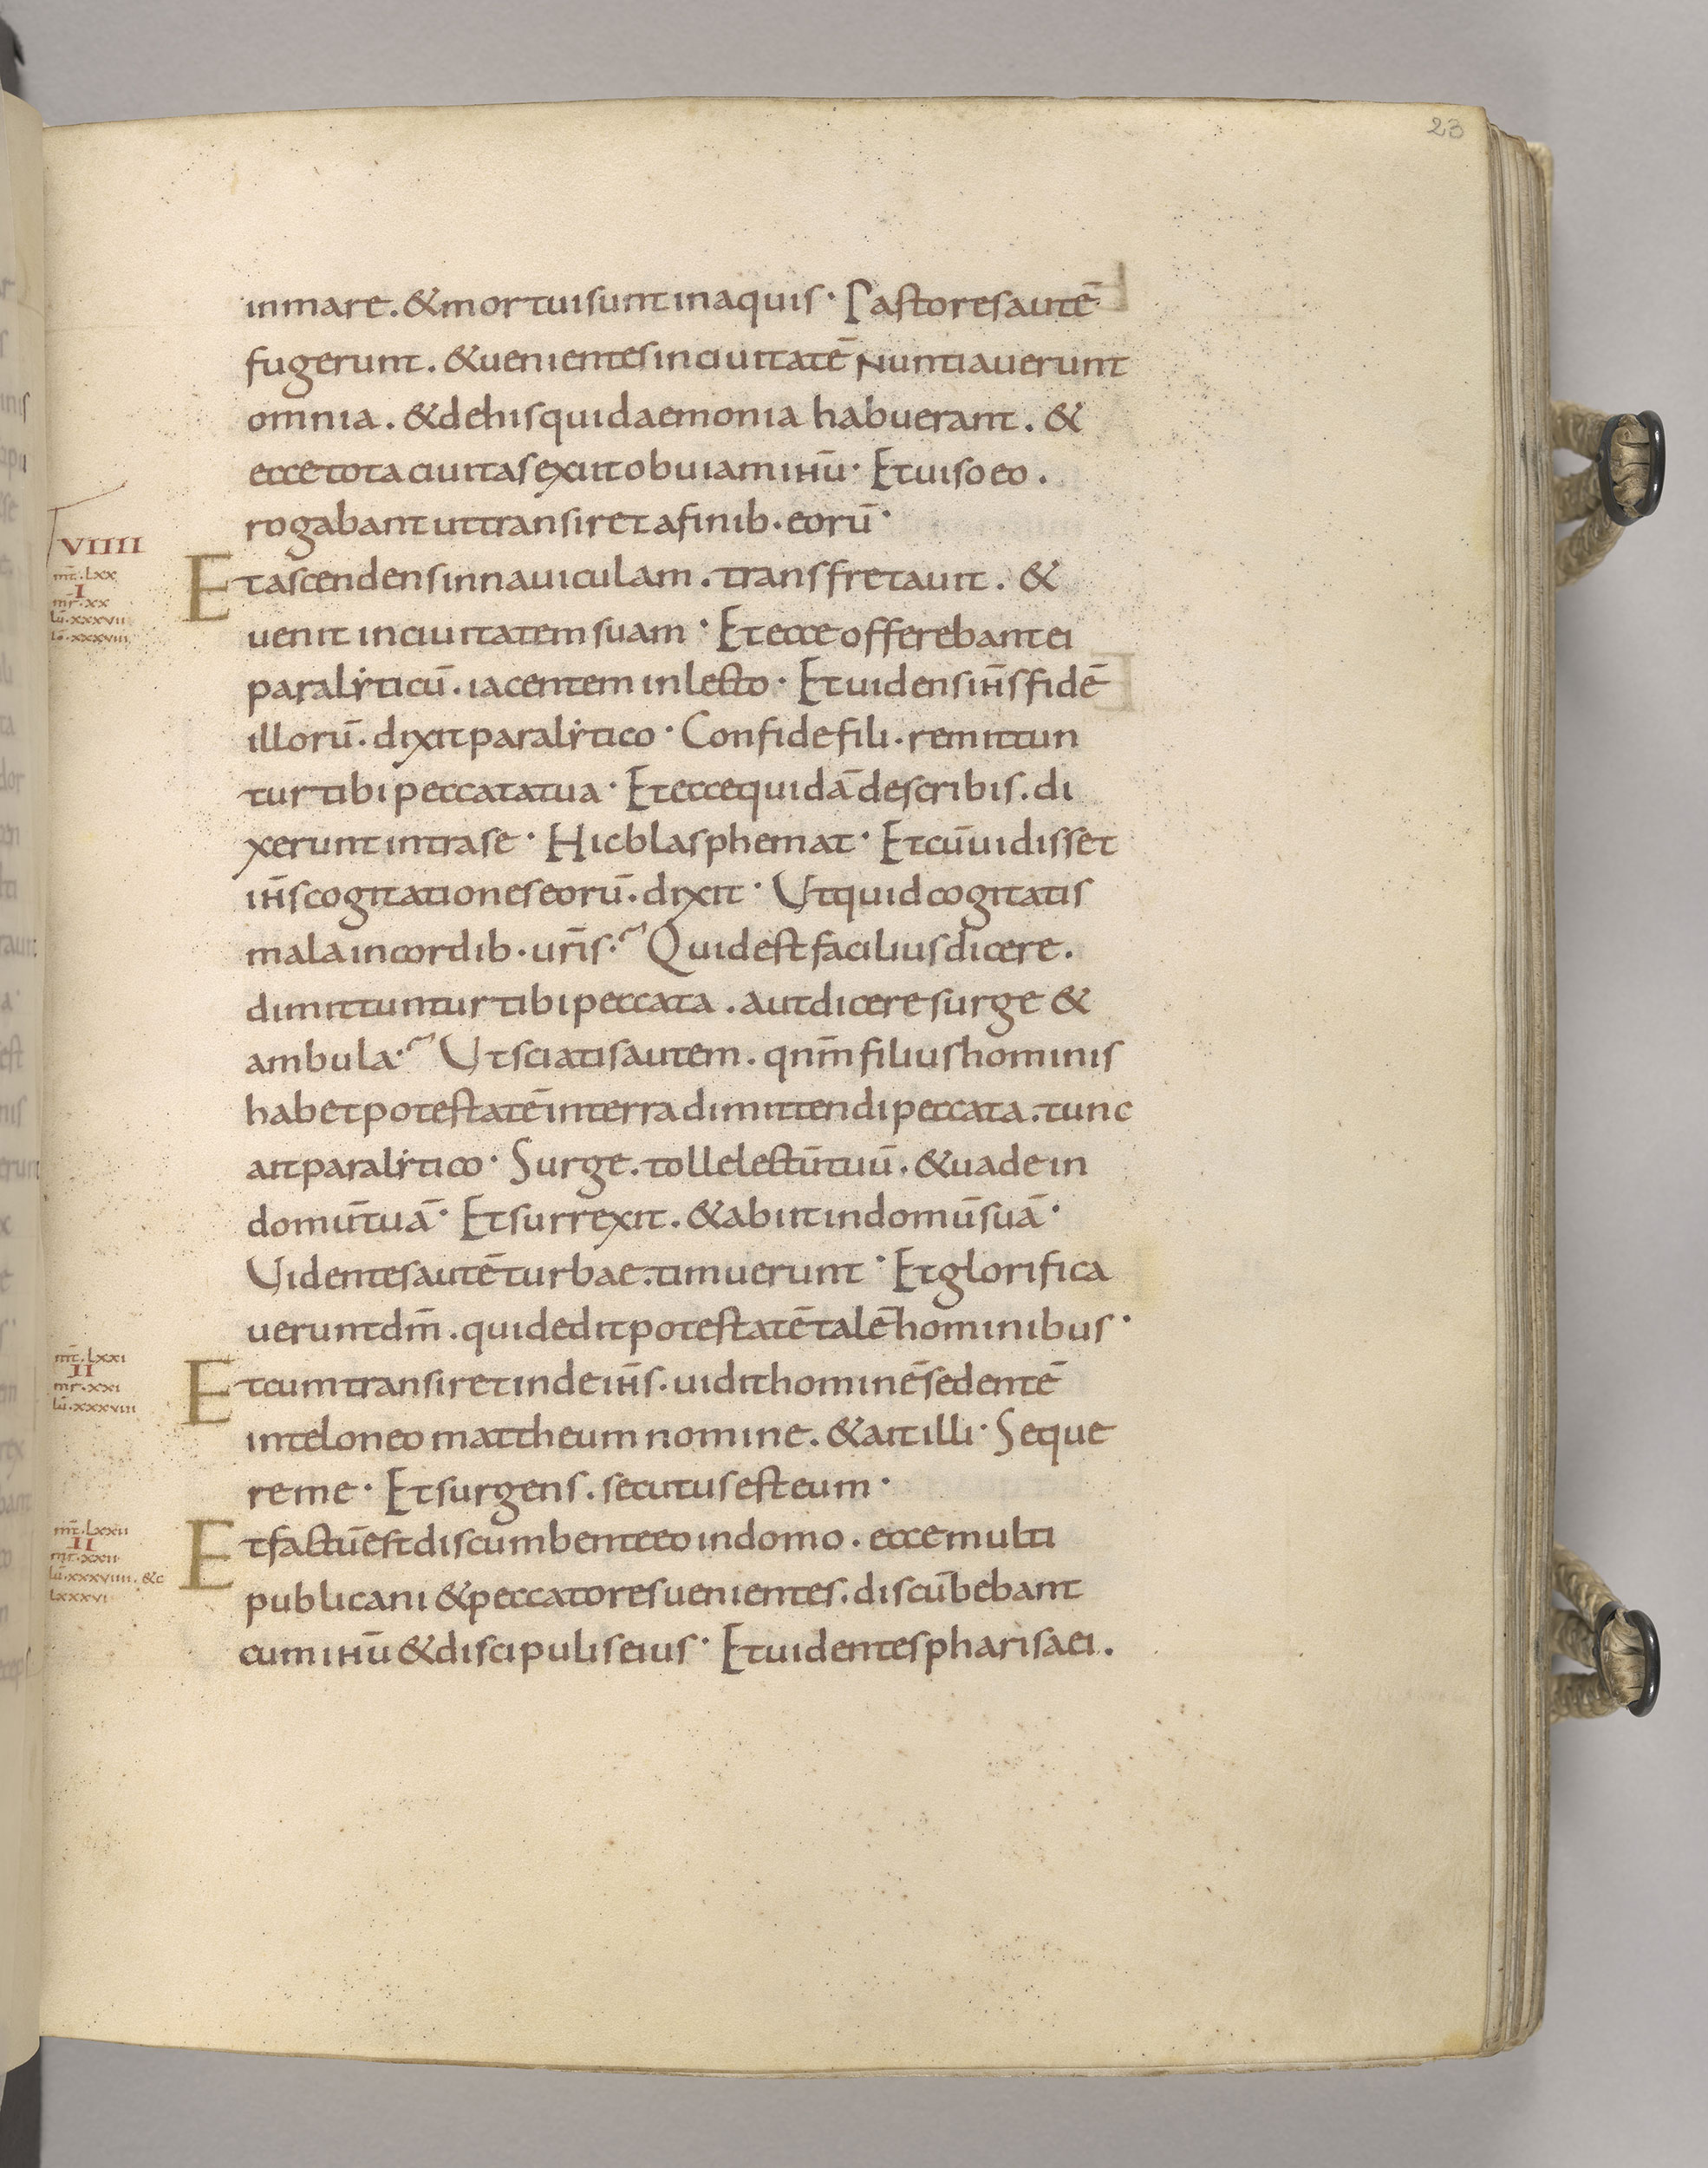 23
inmare. &mortuisuntinaquis· Pastoresautē
fugerunt. &uenientesinciuitatē Nuntiauerunt
omnia. &dehisquidaemonia habuerant. &
eccetotaciuitasexiitobuiamihū· Etuisoeo.
rogabantuttransiretafinib. eorū·
VIIII
mt̄. Lxx
I
mr̄. xx
Lū. xxxvii
Iō. xxxviii
Etascendensinnauiculam. transfretauit. &
uenit inciuitatemsuam· Etecceofferebantei
paralyticū. iacentem inlecto· Etuidensih̄sfidē
illorū. dixitparalytico· Confidefili. remittun
turtibipeccatatua· Eteccequidādescribis. di
xeruntintrase· Hicblasphemat· Etcūuidisset
ih̄scogitationeseorū. dixit· Utquidcogitatis
malaincordib. ur̄is. Quidestfaciliusdicere.
dimittunturtibipeccata. autdiceresurge &
ambula. Utsciatisautem. qnm̄filiushominis
habetpotestatēinterradimittendipeccata. tunc
aitparalytico· Surge. tollelectūtuū. &uadein
domūtuā· Etsurrexit. &abiitindomūsuā·
Uidentesautēturbae. timuerunt· Etglorifica
ueruntdm̄. quideditpotestatētalēhominibus·
mt̄. Lxxi
II
mr. xxi
Lū. xxxviii
Etcumtransiretindeih̄s. uidithominēsedentē
inteloneomattheumnomine. &aitilli· Seque
reme· Etsurgens. secutusesteum·
mt̄. Lxxii
II
mr. xxii
Lū. xxxviiii. &c
Lxxxvi
Etfactūestdiscumbenteeoindomo. eccemulti
publicani &peccatoresuenientes. discūbebant
cumihū&discipuliseius· Etuidentespharisaei.